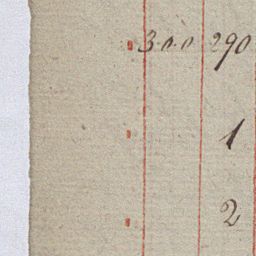 300 290
1
2